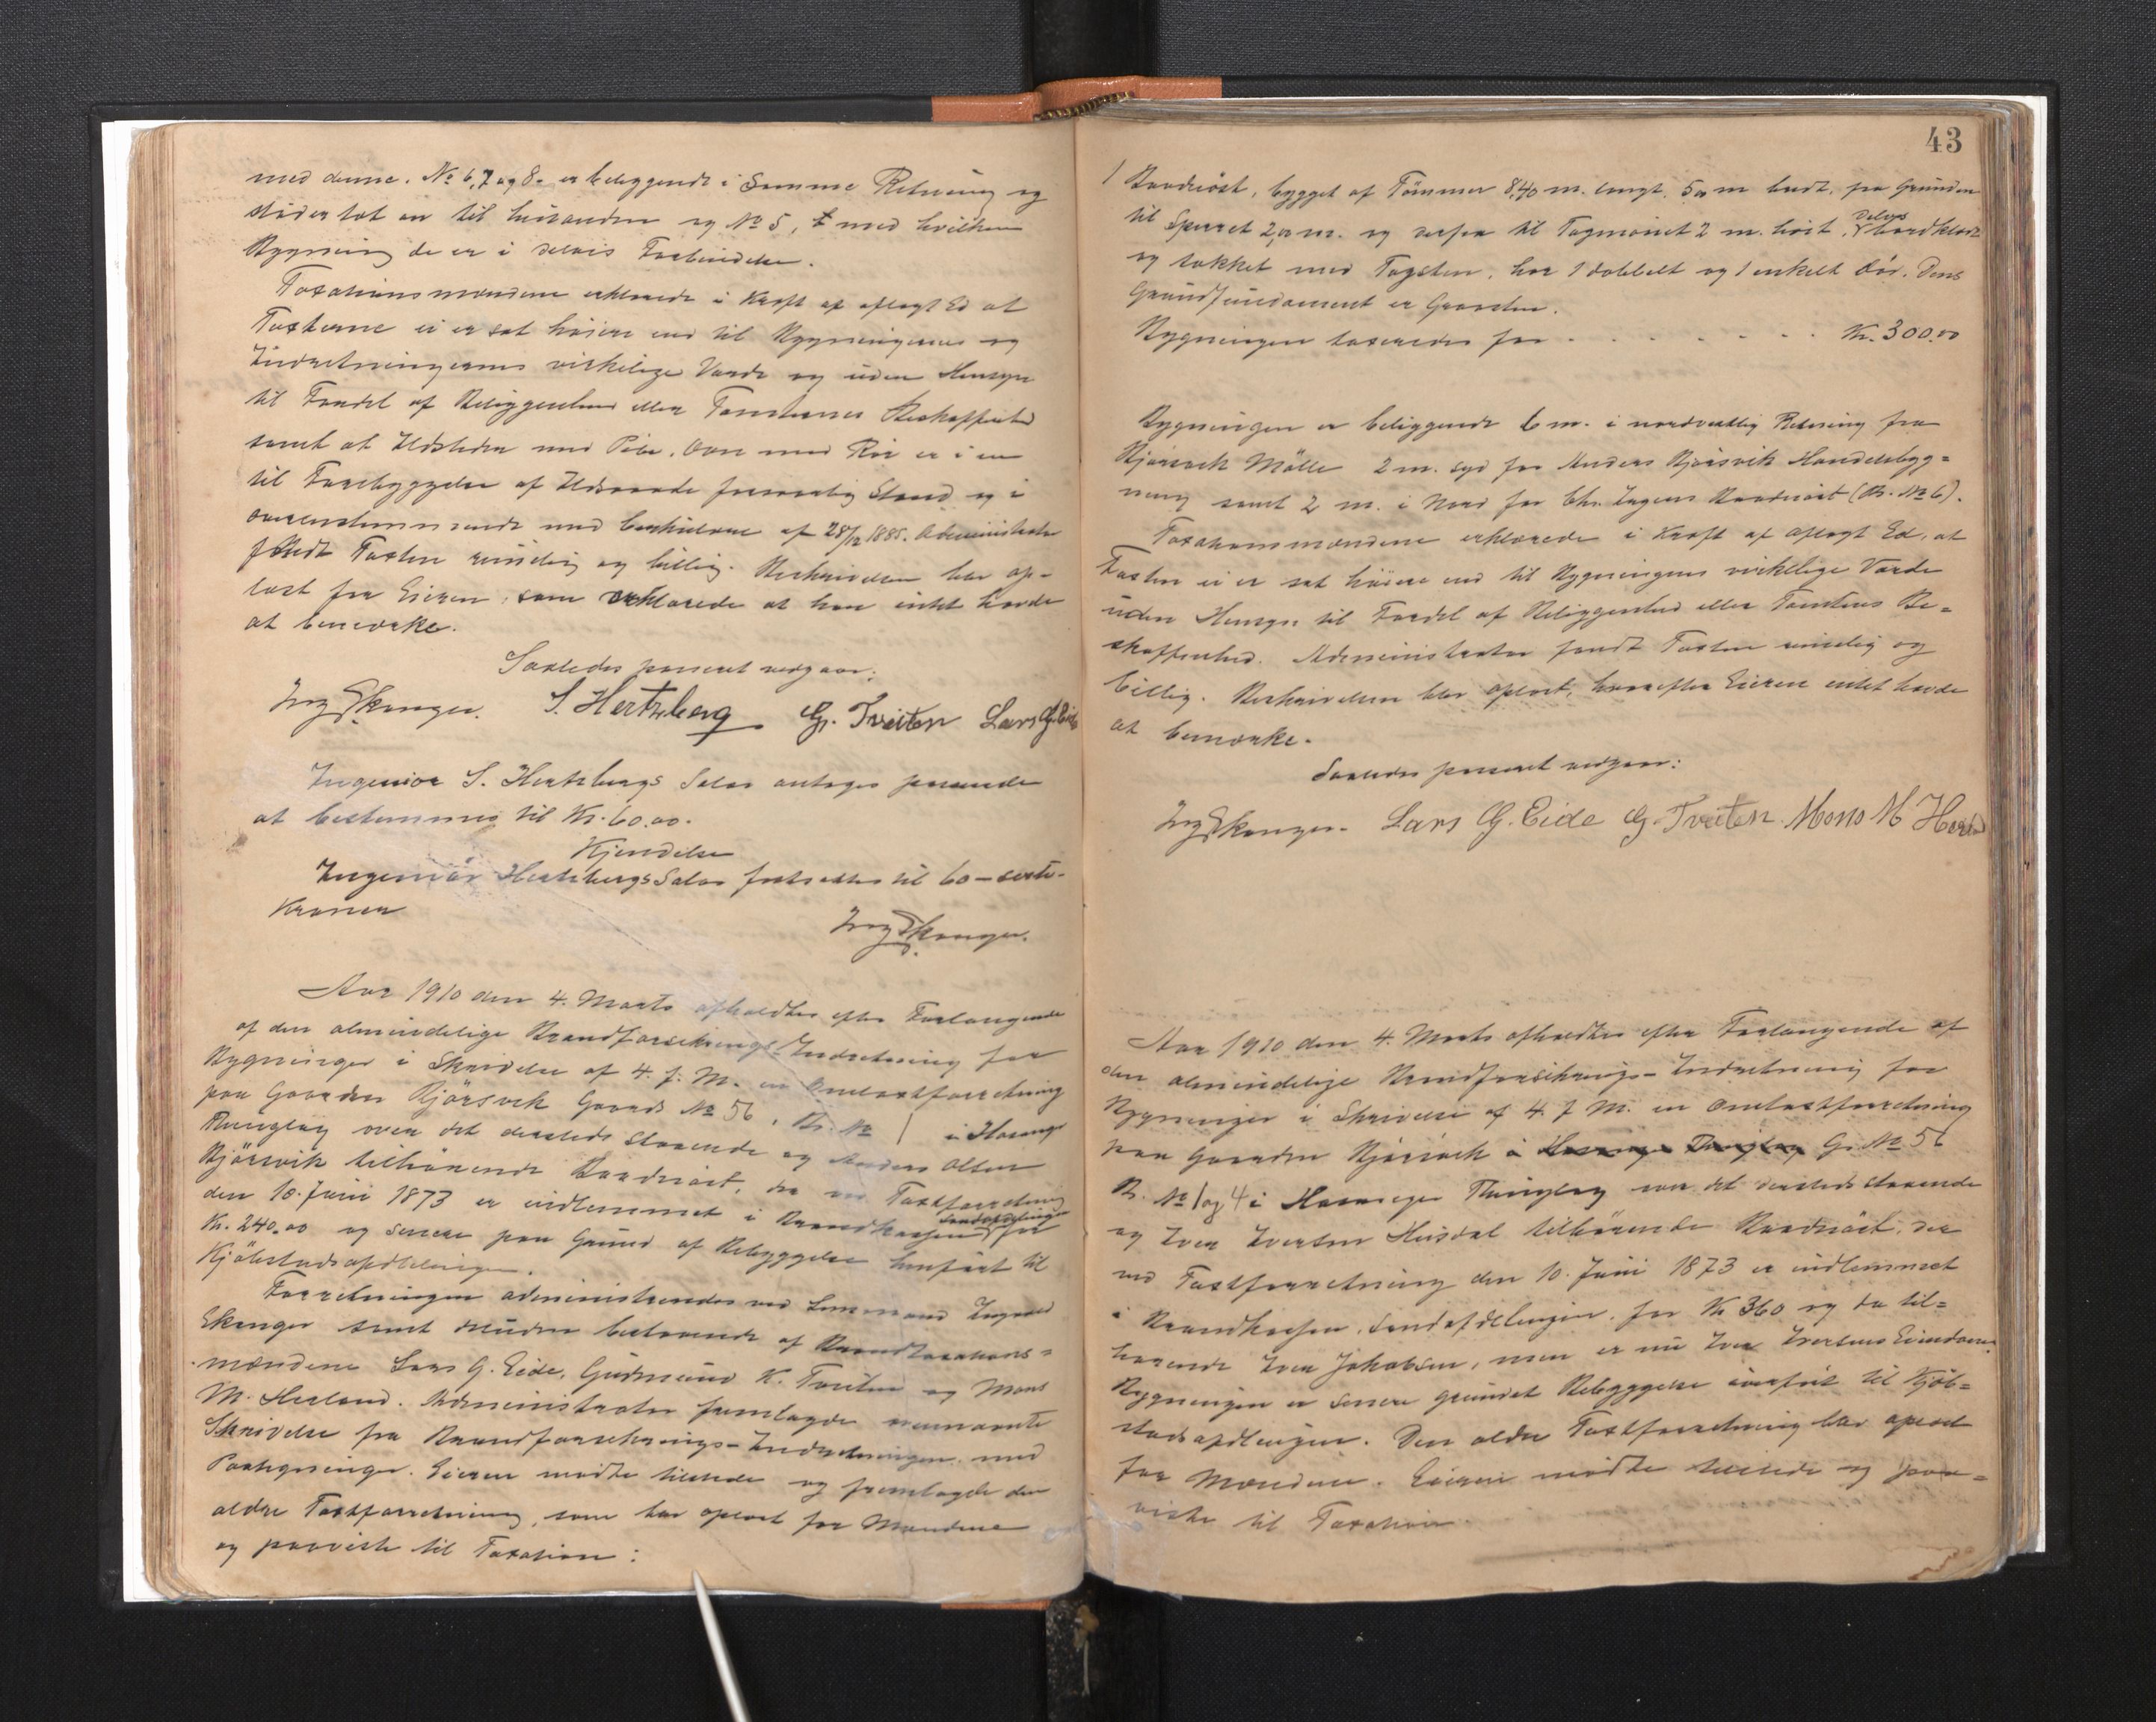 med denne. No 6, 7 og 8 - er beliggende i Samme Retning og
støder tæt an til hinanden og No 5, med hvilken
Bygning de er i delvis Forbindelse.
Taxationsmændene erklærede i Kraft af aflagt Ed at
Taxterne ei er sat høiere end til Bygningernes og
Indretningernes virkelige Værdi og uden Hensyn
til Fordel af Beliggenhed eller Tomternes Beskaffenhed
samt at Ildsteder med Pibe, Ovn med Rør er i en
til Forebyggelse af Ildsvaade forsvarlig Stand og i
overensstemmende med beskrivelse af 28/12 1885. Administrator
fandt Taxten rimelig og billig. Beskrivelsen blev op-
læst for Eieren, som erklærede at han intet havde
at bemærke.
Saaledes passeret vedgaar:
Ing Ekanger. S. Hertzberg G. Tveiten Lars G. Eide
Ingeniør S. Hertzbergs Salær antages passende
at bestemmes til Kr. 60.00.
Kjendelse
Ingeniør Hertzbergs Salær fastsættes til 60 - sexti-
Kroner
Ing Ekanger.
Aar 1910 den 4. Marts afholdtes efter Forlangende
af den almindelige Brandforsikrings-Indretning for
Bygninger i Skrivelse af 4. f. M. en Omtaxtforretning
paa Gaarden Bjørsvik Gaards No 56, Br. No 1 i Hosanger
Thinglag over det dersteds staaende og Anders Olsen
Bjørsvik tilhørende Baadnøst, der ved Taxtforretning
den 10. Juni 1873 er indlemmet i Brandkassens Landafdeling for
Kr. 240.00 og senere paa Grund af Bebyggelse henført til
Kjøbstadsafdelingen.
Forretningen administreredes ved Lensmand Ingvald
Ekanger samt desuden bestaaende af Brandtaxations-
mændene Lars G. Eide, Gudmund K. Tveiten og Mons
M. Herland. Administrator fremlagde overnævnte
Skrivelse fra Brandforsikrings-Indretningen med
Paategninger. Eieren mødte tilstede og fremlagde den
ældre Taxtforretning, som blev oplæst for Mændene
og paaviste til Taxation:
43
1 Baadnøst, bygget af Tømmer 8,40 m. langt, 5,00 m bredt, fra Grunden
til Sperret 2,00 m. og derfra til Tagmønet 2 m. høit, Delvis bordklædt
og tækket med Tagsten, har 1 dobbelt og 1 enkelt Dør. Dens
Grundfundament er Graasten.
Bygningen taxeredes for . . . . . . . Kr. 300.00
Bygningen er beliggende 6 m. i nordvestlig Retning fra
Bjørsvik Mølle 2 m. syd for Anders Bjørsvik Handelsbyg=
ning samt 2 m. i Nord for Chr. Ingens Baadnøst (B. No 6).
Taxationsmændene erklærede i Kraft af aflagt Ed, at
Taxten ei er sat høiere end til Bygningens virkelige Værdi
uden Hensyn til Fordel af Beliggenhed eller Tomtens Be=
skaffenhed. Administrator fandt Taxten rimelig og
billig. Beskrivelsen blev oplæst, hvorefter Eieren intet havde
at bemærke.
Saaledes passeret vedgaar:
Ing Ekanger. Lars G. Eide G. Tveiten Mons M Herland
Aar 1910 den 4. Marts afholdtes efter Forlangende af
den almindelige Brandforsikrings-Indretning for
Bygninger i Skrivelse af 4. f. M. en Omtaxtforretning
paa Gaarden Bjørsvik i Hosanger Thinglag G. No 56
B. No 1 og 4 i Hosanger Thinglag over det dersteds staaende
og Iver Iversen Husdal tilhørende Baadnøst, der
ved Taxtforretning den 10. Juni 1873 er indlemmet
i Brandkassen, Landafdelingen, for Kr 360 og da til=
hørende Iver Jakobsen, men er nu Iver Iversens Eiendom.
Bygningen er senere grundet Bebyggelse overført til Kjøb=
stadsafdelingen. Den ældre Taxtforretning blev oplæst
for Mændene. Eieren mødte tilstede og paa=
viste til Taxation.